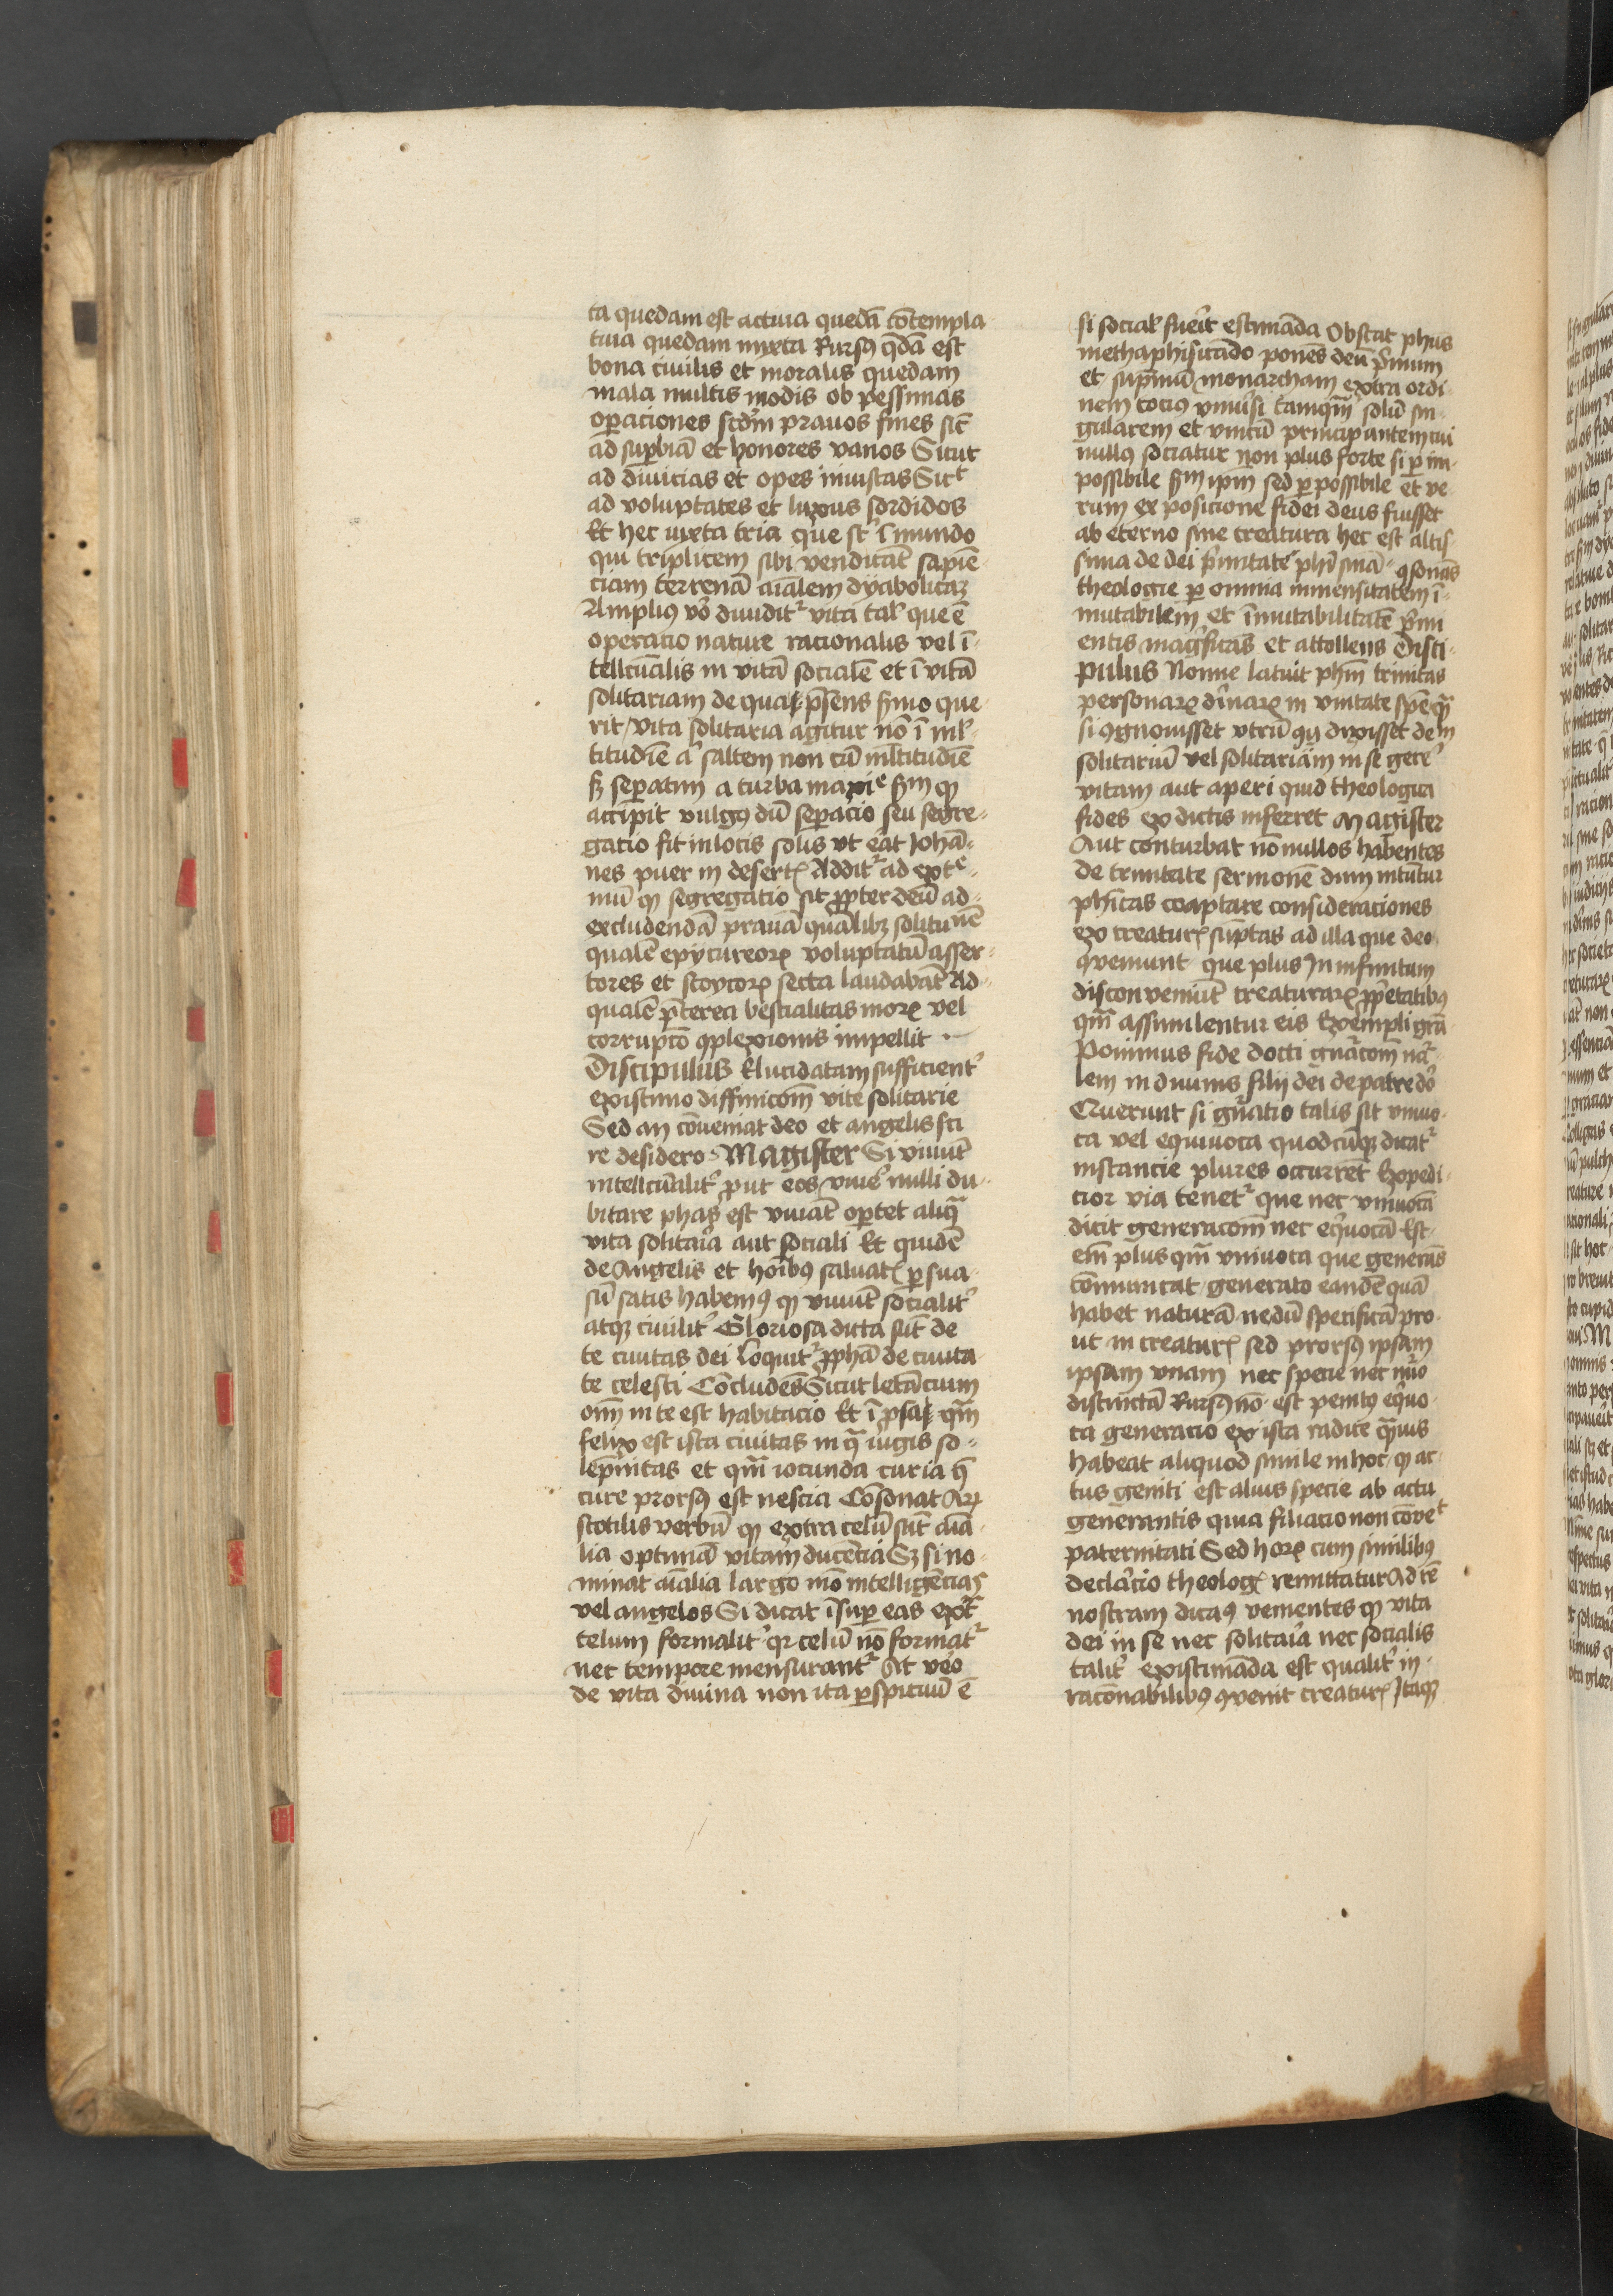 ta quedam est actiua quedā cōtempla
tiua quedam mixta Rursꝰ q̄dā est
bona ciuilis et moralis quedam
mala multis modis ob pessimas
operaciones scd̄m prauos fines sic̄
ad suꝑbiā et honores vanos Sicut
ad diuicias et opes iniustas Sicᵗ
ad voluptates et luxus sordidos
Et hec iuxta tria que st̄ ī mundo
qui triplicem sibi vendicāt sapiē
ciam terrenā aīalem dyabolicaꝫ
Ampliꝰ vō diuiditᷣ vita tal̄ que ē
operatio nature racionalis vel ī-
tellcūalis in vitā socialē et ī vitā
solitariam de qua p̄sens sermo que
rit vita solitaria agitur nō ī ml̄-
titudīe aᷣ saltem non cū ml̄titudīe
sꝫ seꝑatim a turba maxīe scd̄m ꝙ
accipit vulgꝰ dū seꝑacio seu segre-
gatio fit in locis solis vt erat Johā-
nes puer in desertꝭ Additᷣ ad extᵉ-
mū ꝙ segregatio sit ꝓpter deū ad
excludendā prauā qualībꝫ solitu nē
qualē epycureorꝝ voluptatū asser-
tores et stoycorꝝ secta laudabāt Ad
qualē p̄terea bestialitas morꝝ vel
corrupcō ꝯplexionis impellit
Discipulus Elucidatam sufficientᷣ
existimo diffinicōm vite solitarie
Sed an cōueniat deo et angelis sci
re desidero Magister Si viuūt
intellcūalitᷣ put eos viuē nulli du-
bitare phas est viuāt oꝑtet aliq̄
vita solitaīa aut sociali Et quidē
de Angelis et hoībꝰ saluatꝭ ꝑsua
sū satis habemꝰ ꝙ viuūt socialitᷣ
atqꝫ ciuilitᷣ Gloriosa dicta sūt de
te ciuitas dei loquitᷣ ꝓphā de ciuita
te celesti Cōcludēs Sicut letāciuꝫ
oīm in te est habitacio Et ī psal̄ qm̄
felix est ista ciuitas in qᷓ iugis so-
lēpnitas et qm̄ iocunda curia q̄
cure prorsꝰ est nescia Cōsonat Ari
stotilis verbū ꝙ extra celū sūt aīa
lia optimā vitam ducēcia Sꝫ si no
minat aīalia largo mō intelligēcias
vel angelos Si dicat īsuꝑ eas extᷓ
celum formalitᷣ qꝛ celū nō formātᷣ
nec tempore mensurantᷣ At vēo
de vita diuina non ita ꝑspicuū ē
si social̄ fuerit estimāda Obstat phūs
methaphisicādo ponēs deū p̄mum
et supmū monarcham extra ordi-
nem tociꝰ vniūsi tamqm̄ solū sin-
gularem et vnicū principantem cui
nullꝰ sociatur non plus forte si ꝑ im-
possibile scd̄m ipm̄ sed ꝑ possibile et ve-
rum ex posicione fidei deus fuisset
ab eterno sine creatura hec est altis
sima de dei p̄mitate phī sn̄ia ꝯsonās
theologie ꝑ omnia immensitatem ī-
mutabilem et īmutabilitatē p̄mi
entis magᷣficās et attollens Disci-
pulus Nonne latuit phm̄ trinitas
personarꝝ diuīarꝝ in vnitate spēī qᷓ
si ꝯgnouisset vtrū qꝫ dixisset deū
solitariū vel solitariam in se gerē
vitam aut aperi quid theologica
fides ex dictis inferret Magister
Aut conturbat nōnullos habentes
de trinitate sermonē dum nituntur
phicas coaptare consideraciones
ex creaturꝭ sūptas ad illa que deo
ꝯveniunt que plus in infinitum
disconveniūt creaturarꝝ ꝓprietatibꝰ
qm̄ assimilentur eis Exempli grā
Ponimus fide docti gn̄acōm nat̄-
lem in diuinis filij dei de patre deo
Querunt si gn̄atio talis sit vniuo-
ca vel equiuoca quodcūqꝫ dicatᷣ
instancie plures occurrēt Expedi-
cior via tenetᷣ que nec vniuocā
dicit generacōm nec eqᷣuocā Est
em̄ plus qm̄ vniuoca que generās
cōmunicat generato eandē quā
habet naturā nedū specificā pro-
ut in creaturꝭ sed prorsꝰ ipsam
ipsam vnam nec specie nec nūo
distinctā Rursꝰ nō est penitꝰ eqᷣuo-
ca generacio ex ista radice qᷓuis
habeat aliquod simile in hoc ꝙ ac
tus geniti est alius specie ab actu
generantis quia filiacio non cōvēᵗ
paternitati Sed horꝝ cum similibꝰ
declārcio theologꝭ remittatur Ad rē
nostram dicāꝰ venientes ꝙ vita
dei in se nec solitaīa nec socialis
talitᷣ existimāda est qualitᷣ in
racōnabilibꝰ ꝯvenit creaturꝭ Itaqꝫ